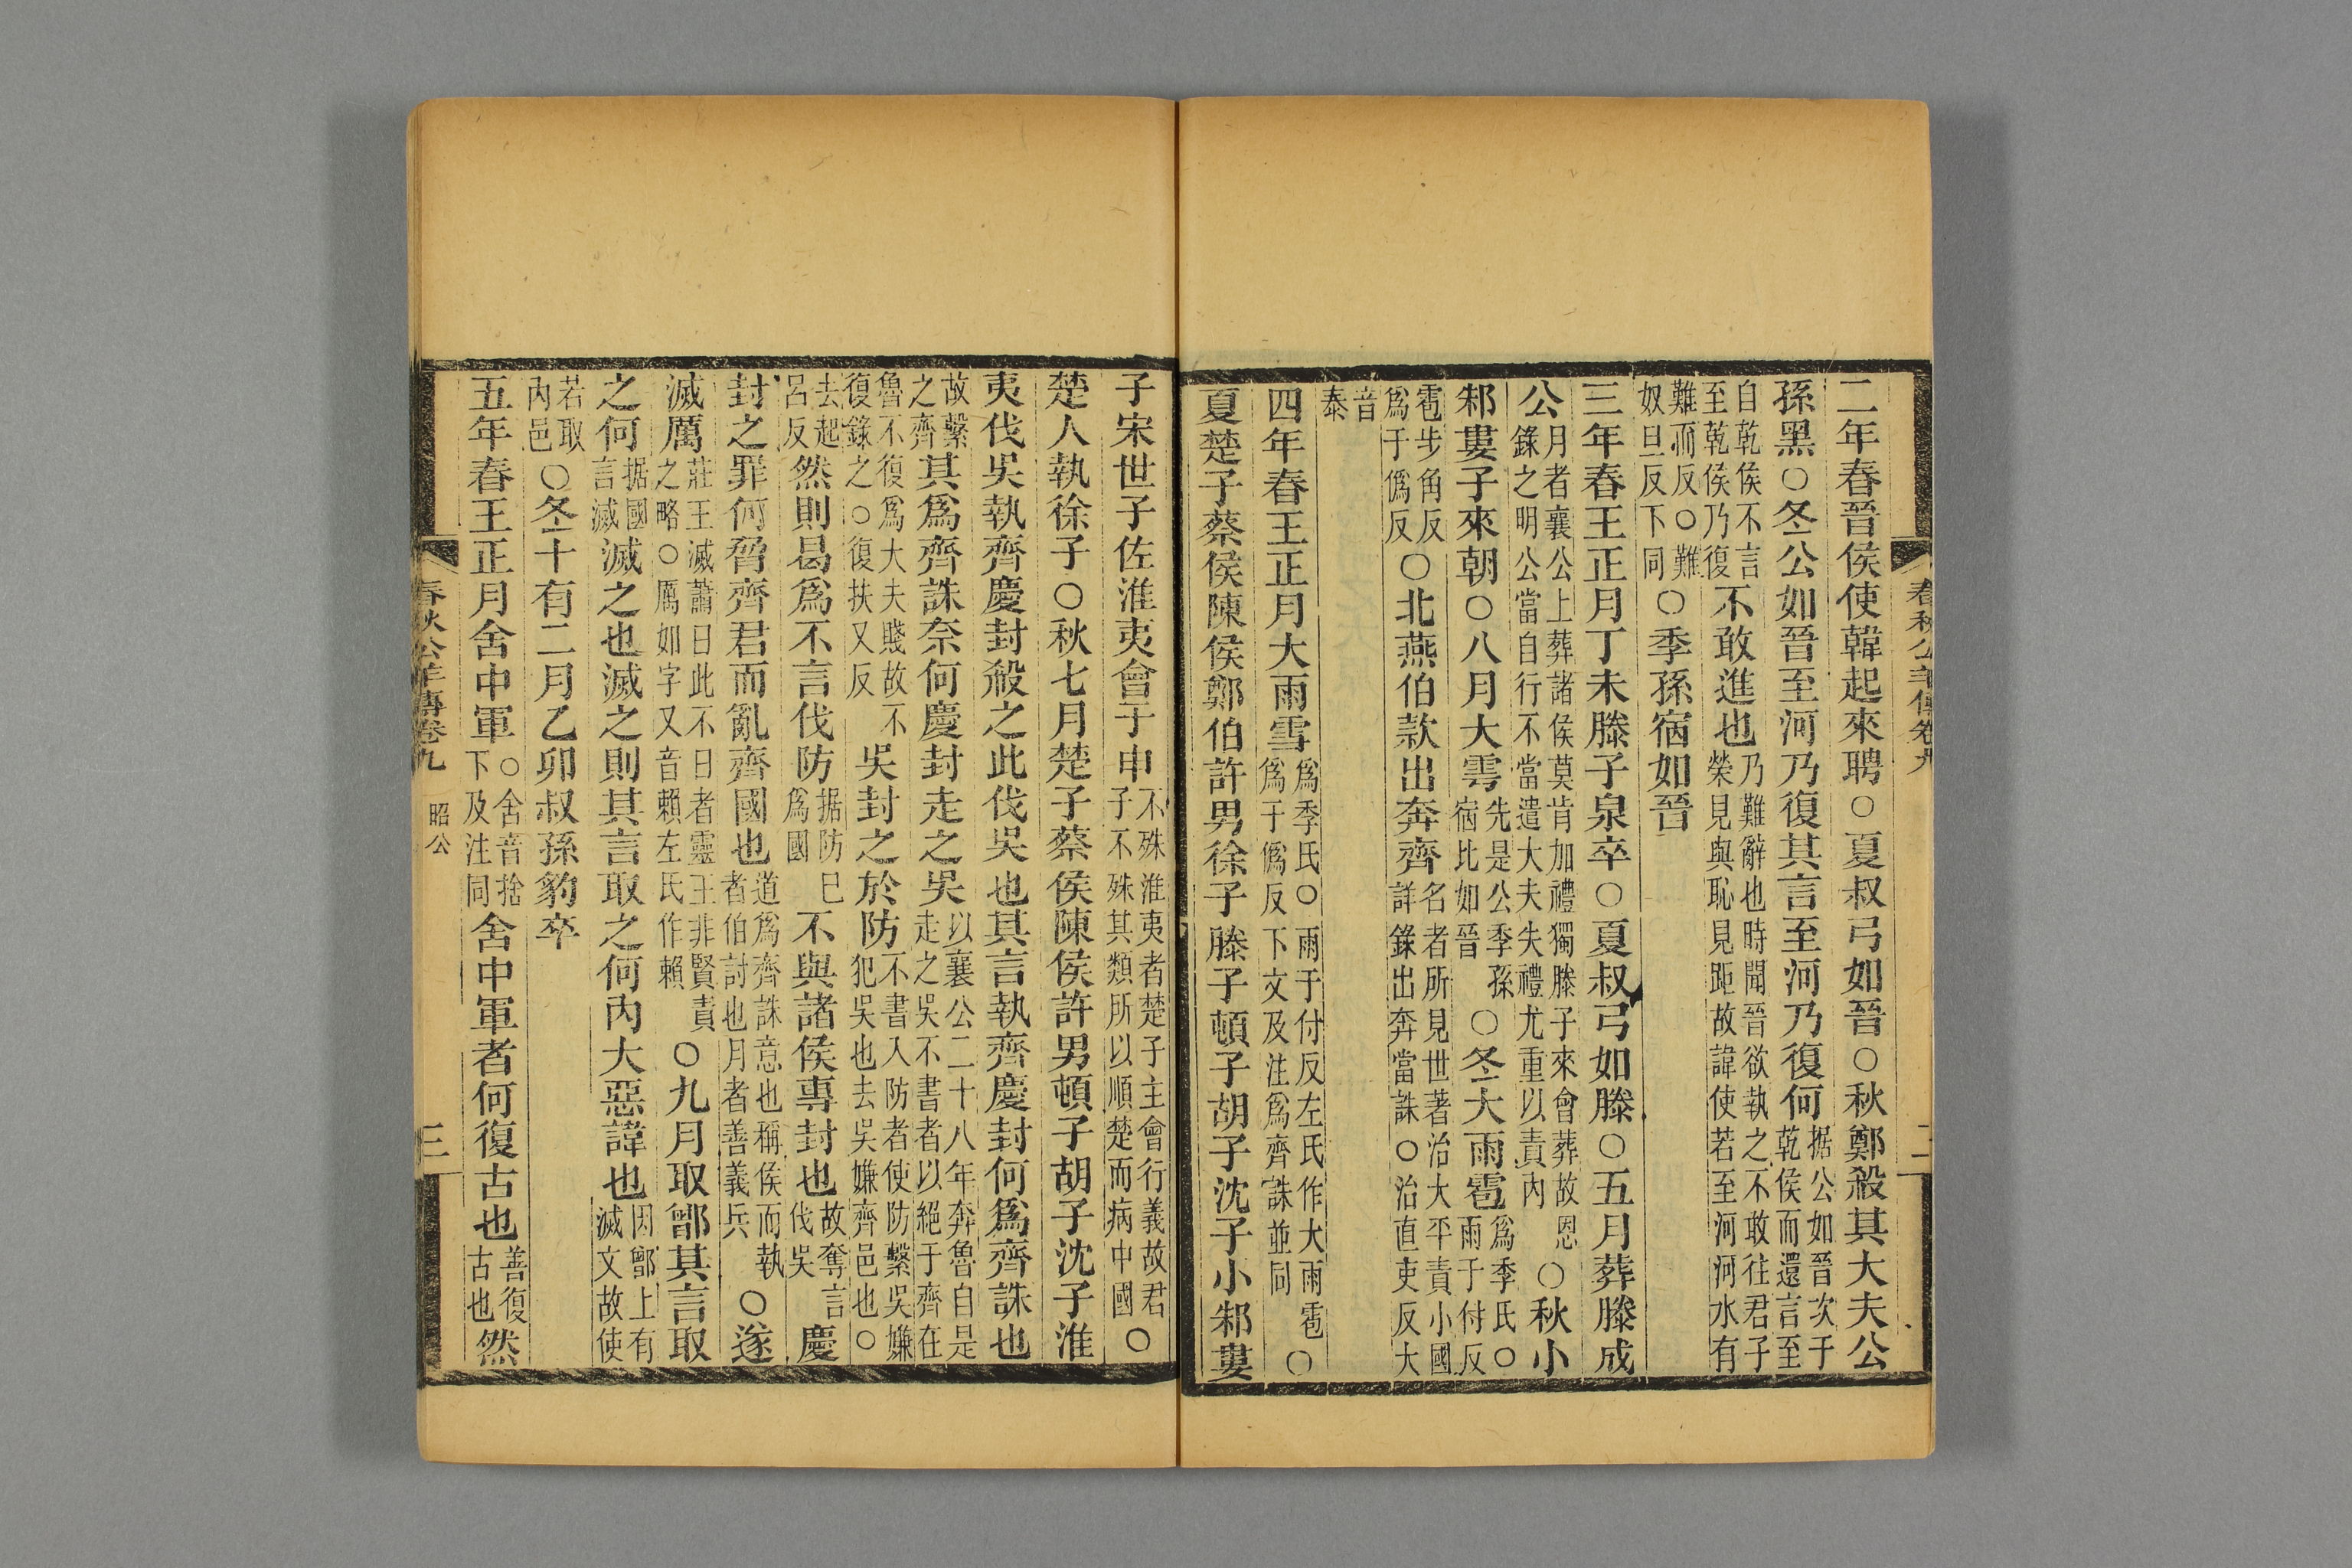 春秋公羊傳卷九 二
二年春晉侯使韓起來聘○夏叔弓如晉○秋鄭殺其大夫公
孫黑○冬公如晉至河乃復其言至河乃復何据公如晉次于乾侯而還言至
自乾侯不言至乾侯乃復不敢進也乃難辭也時聞晉欲執之不敢往君子榮見與恥見距故諱使若至河河水有
難而反○難奴旦反下同○季孫宿如晉
三年春王正月丁未滕子泉卒○夏叔弓如滕○五月葬滕成
公月者襄公上葬諸侯莫肯加禮獨滕子來會葬故恩錄之明公當自行不當遣大夫失禮尤重以責內○秋小
邾婁子來朝○八月大雩先是公季孫宿比如晉○冬大雨雹爲季氏○雨于付反
雹步角反爲于僞反○北燕伯款出奔齊名者所見世著治大平責小國詳錄出奔當誅○治直吏反大
音泰
四年春王正月大雨雪爲季氏○雨于付反左氏作大雨雹爲于僞反下文及注爲齊誅並同○
夏楚子蔡侯陳侯鄭伯許男徐子滕子頓子胡子沈子小邾婁
子宋世子佐淮夷會于申不殊淮夷者楚子主會行義故君子不殊其類所以順楚而病中國○
楚人執徐子○秋七月楚子蔡侯陳侯許男頓子胡子沈子淮
夷伐吳執齊慶封殺之此伐吳也其言執齊慶封何爲齊誅也
故繫之齊其爲齊誅奈何慶封走之吳以襄公二十八年奔魯自是走之吳不書者以絕于齊在
魯不復爲大夫賤故不復錄之○復扶又反吳封之於防不書入防者使防繫吳嫌犯吳也去吳嫌齊邑也○
去起呂反然則曷爲不言伐防据防已爲國不與諸侯專封也故奪言伐吳慶
封之罪何脅齊君而亂齊國也道爲齊誅意也稱侯而執者伯討也月者善義兵○遂
滅厲莊王滅蕭日此不日者靈王非賢責之略○厲如字又音賴左氏作賴○九月取鄫其言取
之何据國言滅滅之也滅之則其言取之何內大惡諱也因鄫上有滅文故使
若取內邑○冬十有二月乙卯叔孫豹卒
五年春王正月舍中軍○舍音捨下及注同舍中軍者何復古也善復古也然
春秋公羊傳卷九 昭公 三